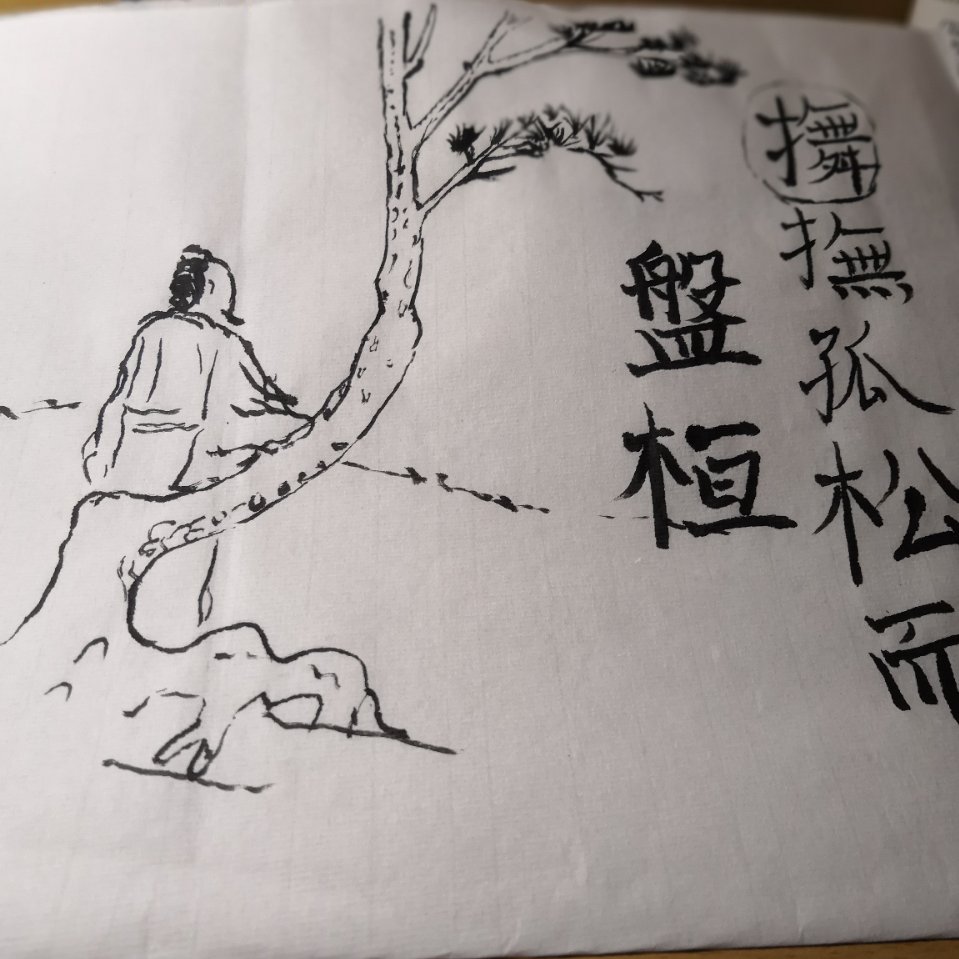 撫孤松而
盤桓